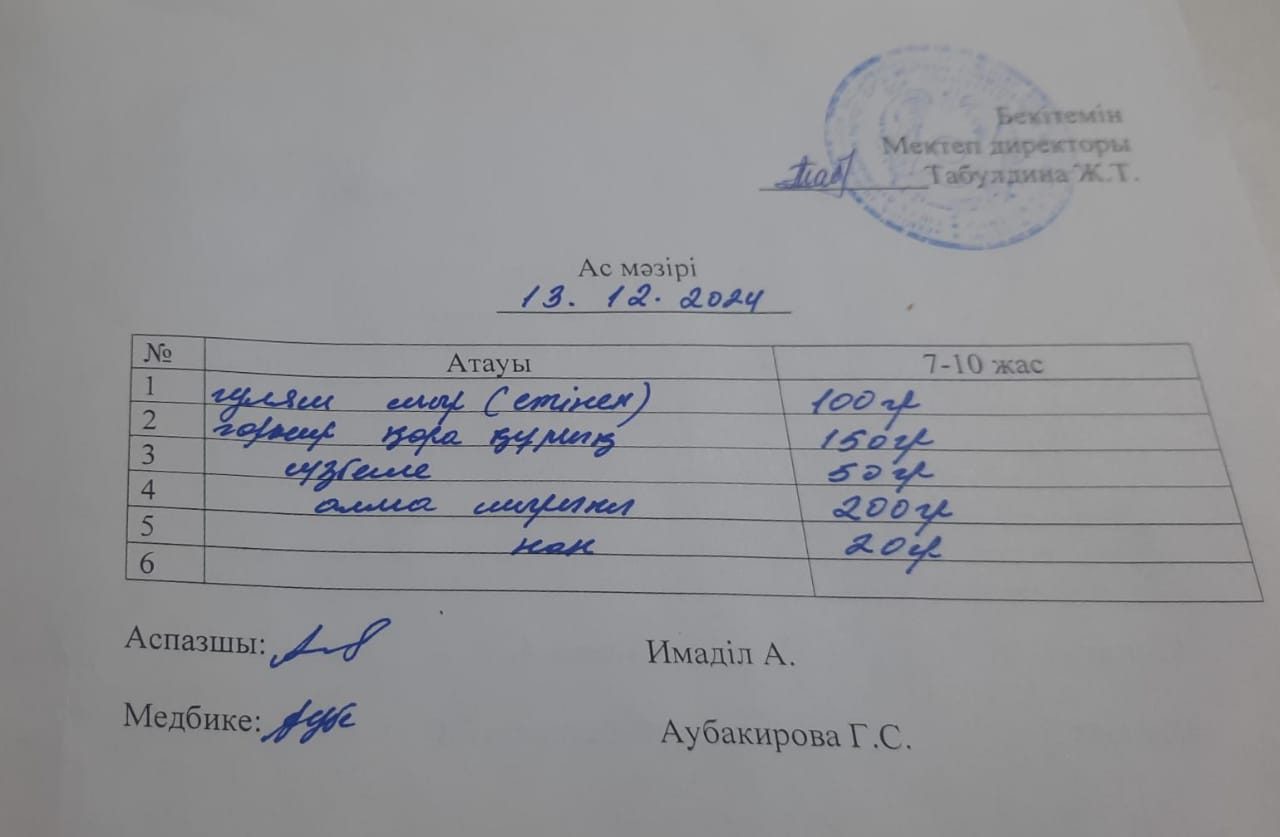 Бекітемін
Мектеп директоры
Табулдина Ж.Т.
Ас мәзірі
13. 12. 2024
№ Атауы 7-10 жас
1 гуляш сыр (етінен) 100гр
2 гарнир қара құмық 150гр
3 сүзбеше 50гр
4 алма шырыны 200гр
5 нан 20гр
6
Аспазшы: Имаділ А.
Медбике: Аубакирова Г.С.